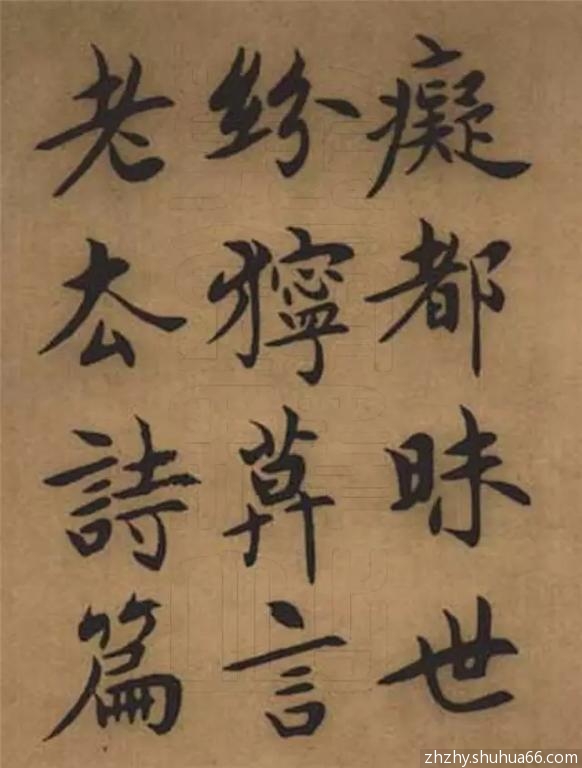 癡都昧世
紛獰莫言
老厺詩篇
zhzhy.shuhua66.com